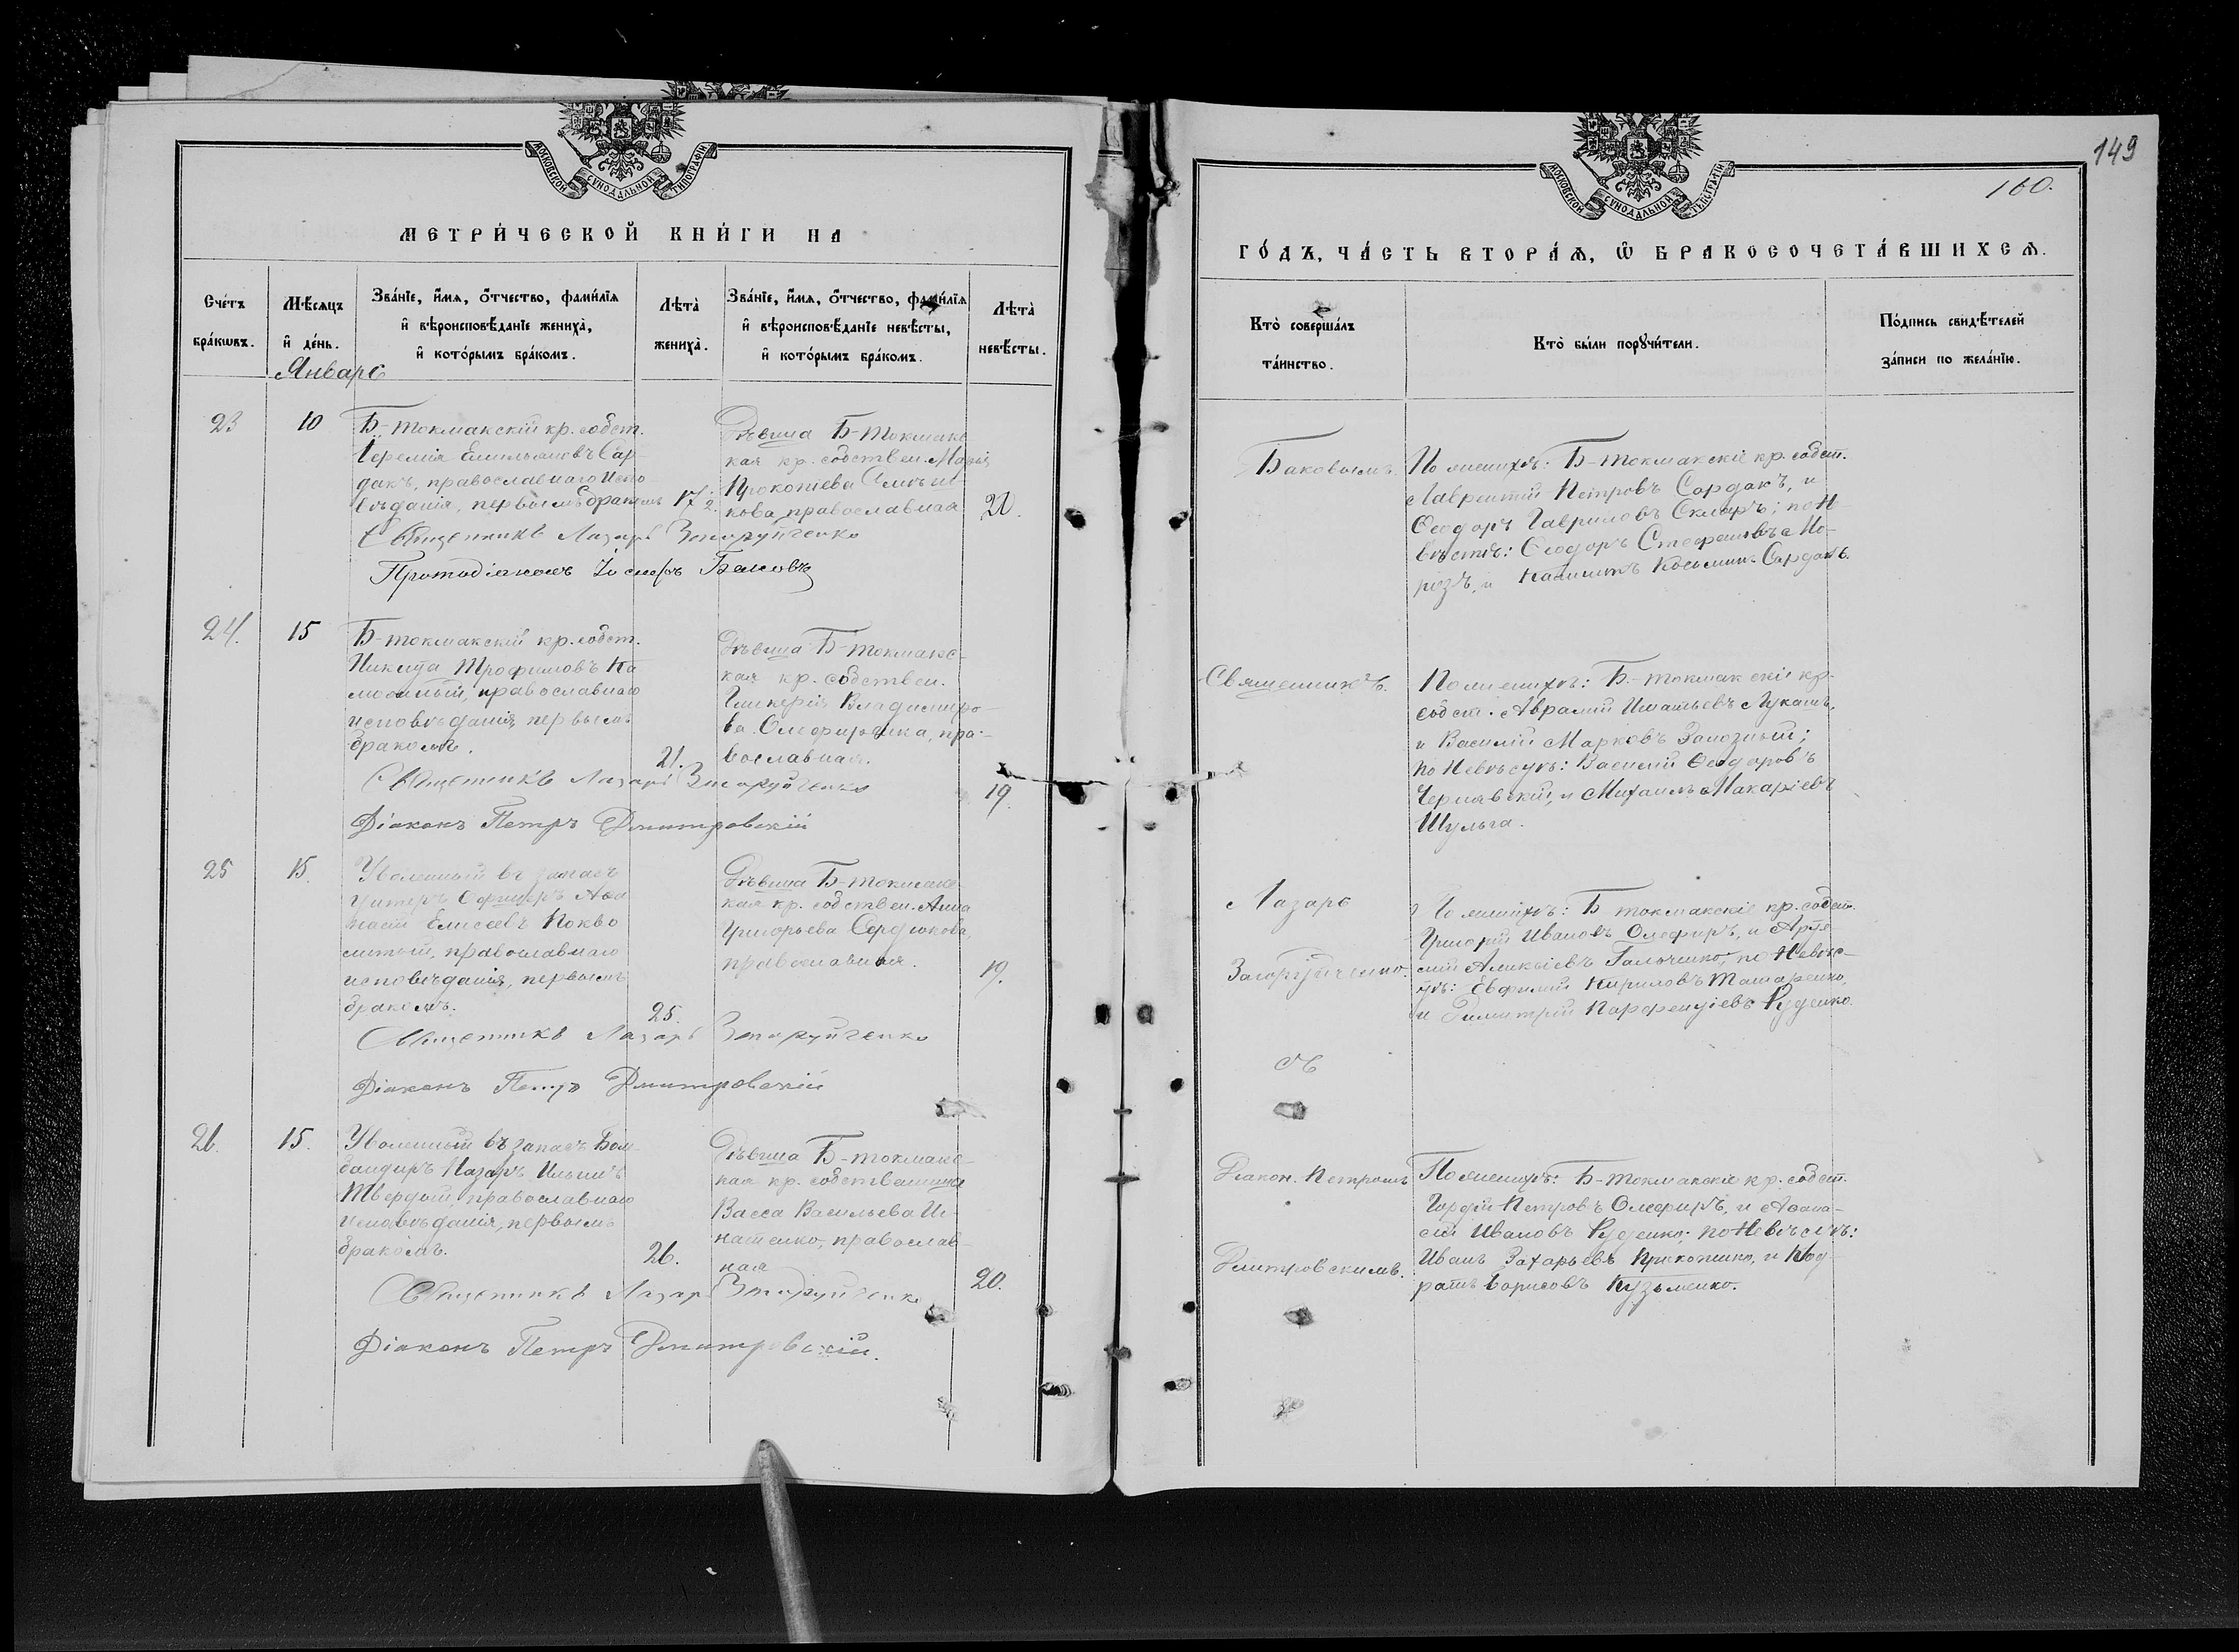 МОСКОВСКОЙ СѴНОДАЛЬНОЙ ТИПОГРАФІИ
МЕТРИ́ЧЕСКОЙ КНИ́ГИ НА
Сче́тъ бра́кѡвъ.
Мѣ́сяцъ и҆ де́нь.
Зва́нїе, и҆́мѧ, ѻ҆́тчество, фами́лїѧ
и҆ вѣроисповѣ́данїе жениха̀,
и҆ кото́рымъ бра́комъ.
Лѣта̀ жениха̀.
Зва́нїе, и҆́мѧ, ѻ҆́тчество, фами́лїѧ
и҆ вѣроисповѣ́данїе невѣ́сты,
и҆ кото́рымъ бра́комъ.
Лѣта̀ невѣ́сты.
Январь
23
10
Б-токмакскій кр. собст.
Іеремія Емильяновъ Сар-
дакъ, православнаго испо
вѣданія, первымъ бракомъ
17½
Дѣвица Б-токмакс
кая кр. собствен. Марія
Прокопіева
кова православная
20.
Священникъ Лазарь Загоруйченко
Протодіаконъ Іосифъ Баковъ
24.
15
Б-токмакскій кр. собст.
Никита Трофимовъ Ка
православнаго
исповѣданія, первымъ
бракомъ.
21.
Дѣвица Б-токмакс-
кая кр. собствен.
Гликерія Владиміро-
ва Олефиренка, пра-
вославная.
19.
Священникъ Лазарь Загоруйченко
Діаконъ Петръ Дмитровскій
25
15.
Уволенный въ запасъ
Унтеръ Офицеръ Аѳа
насій Елисеевъ Покво
литый, православнаго
исповѣданія, первымъ
бракомъ.
25.
Дѣвица Б-токмакс
кая кр. собствен. Анна
Григорьева Сердюкова,
православная.
19.
Священникъ Лазарь Загоруйченко
Діаконъ Петръ Дмитровскій
26.
15.
Уволенный въ запасъ Бом-
бандиръ Назаръ Ильинъ
Твердый, православнаго
исповѣданія, первымъ
бракомъ.
26.
Дѣвица Б-токмакс
кая кр. собственница
Васса Васильева Иг-
натенко, православ-
ная
20.
Священникъ Лазарь Загоруйченко
Діаконъ Петръ Дмитровскій.
149
160.
МОСКОВСКОЙ СѴНОДАЛЬНОЙ ТИПОГРАФІИ
ГО́ДЪ, ЧА́СТЬ ВТОРА́Ѧ, Ѽ БРАКОСОЧЕТА́ВШИХСѦ.
Кто̀ соверша́лъ
та́инство.
Кто̀ бы́ли порꙋчи́тели.
По́дпись свидѣ́телей
за́писи по жела́нїю.
Баковымъ.
По женихѣ: Б-токмакскіе кр. собст.
Лаврентій Петровъ Сардакъ, и
Ѳеодоръ Гавриловъ Скляръ; по Н-
вѣстѣ: Ѳеодоръ Стефановъ Мо-
розъ, и Калиникъ Косьмин. Сардакъ.
Священникъ.
По женихѣ: Б-токмакскіе кр.
собст. Аврамій Игнатьевъ Лукашъ,
и Василій Марковъ Залозный;
по Невѣстѣ: Василій Ѳеодоровъ
Чернявскій, и Михаилъ Макаріевъ
Шульга.
Лазарь
Загоруйченко.
По женихѣ: Б токмакскіе кр. собст.
Григорій Ивановъ Олефиръ, и Артe-
мій Алексіевъ Гальченко, по Невѣс-
тѣ: Евфимій Кириловъ Татаренко,
и Димитрій Парфентіевъ Руденко.
съ
Діакон. Петромъ
Дмитровскимъ.
По женихѣ: Б-токмакскіе кр. собст.
Гордій Петровъ Олефиръ, и Аѳана-
сій Ивановъ Руденко; по Невѣстѣ:
Иванъ Захарьевъ и Код-
ратъ Борисовъ Кузьменко.